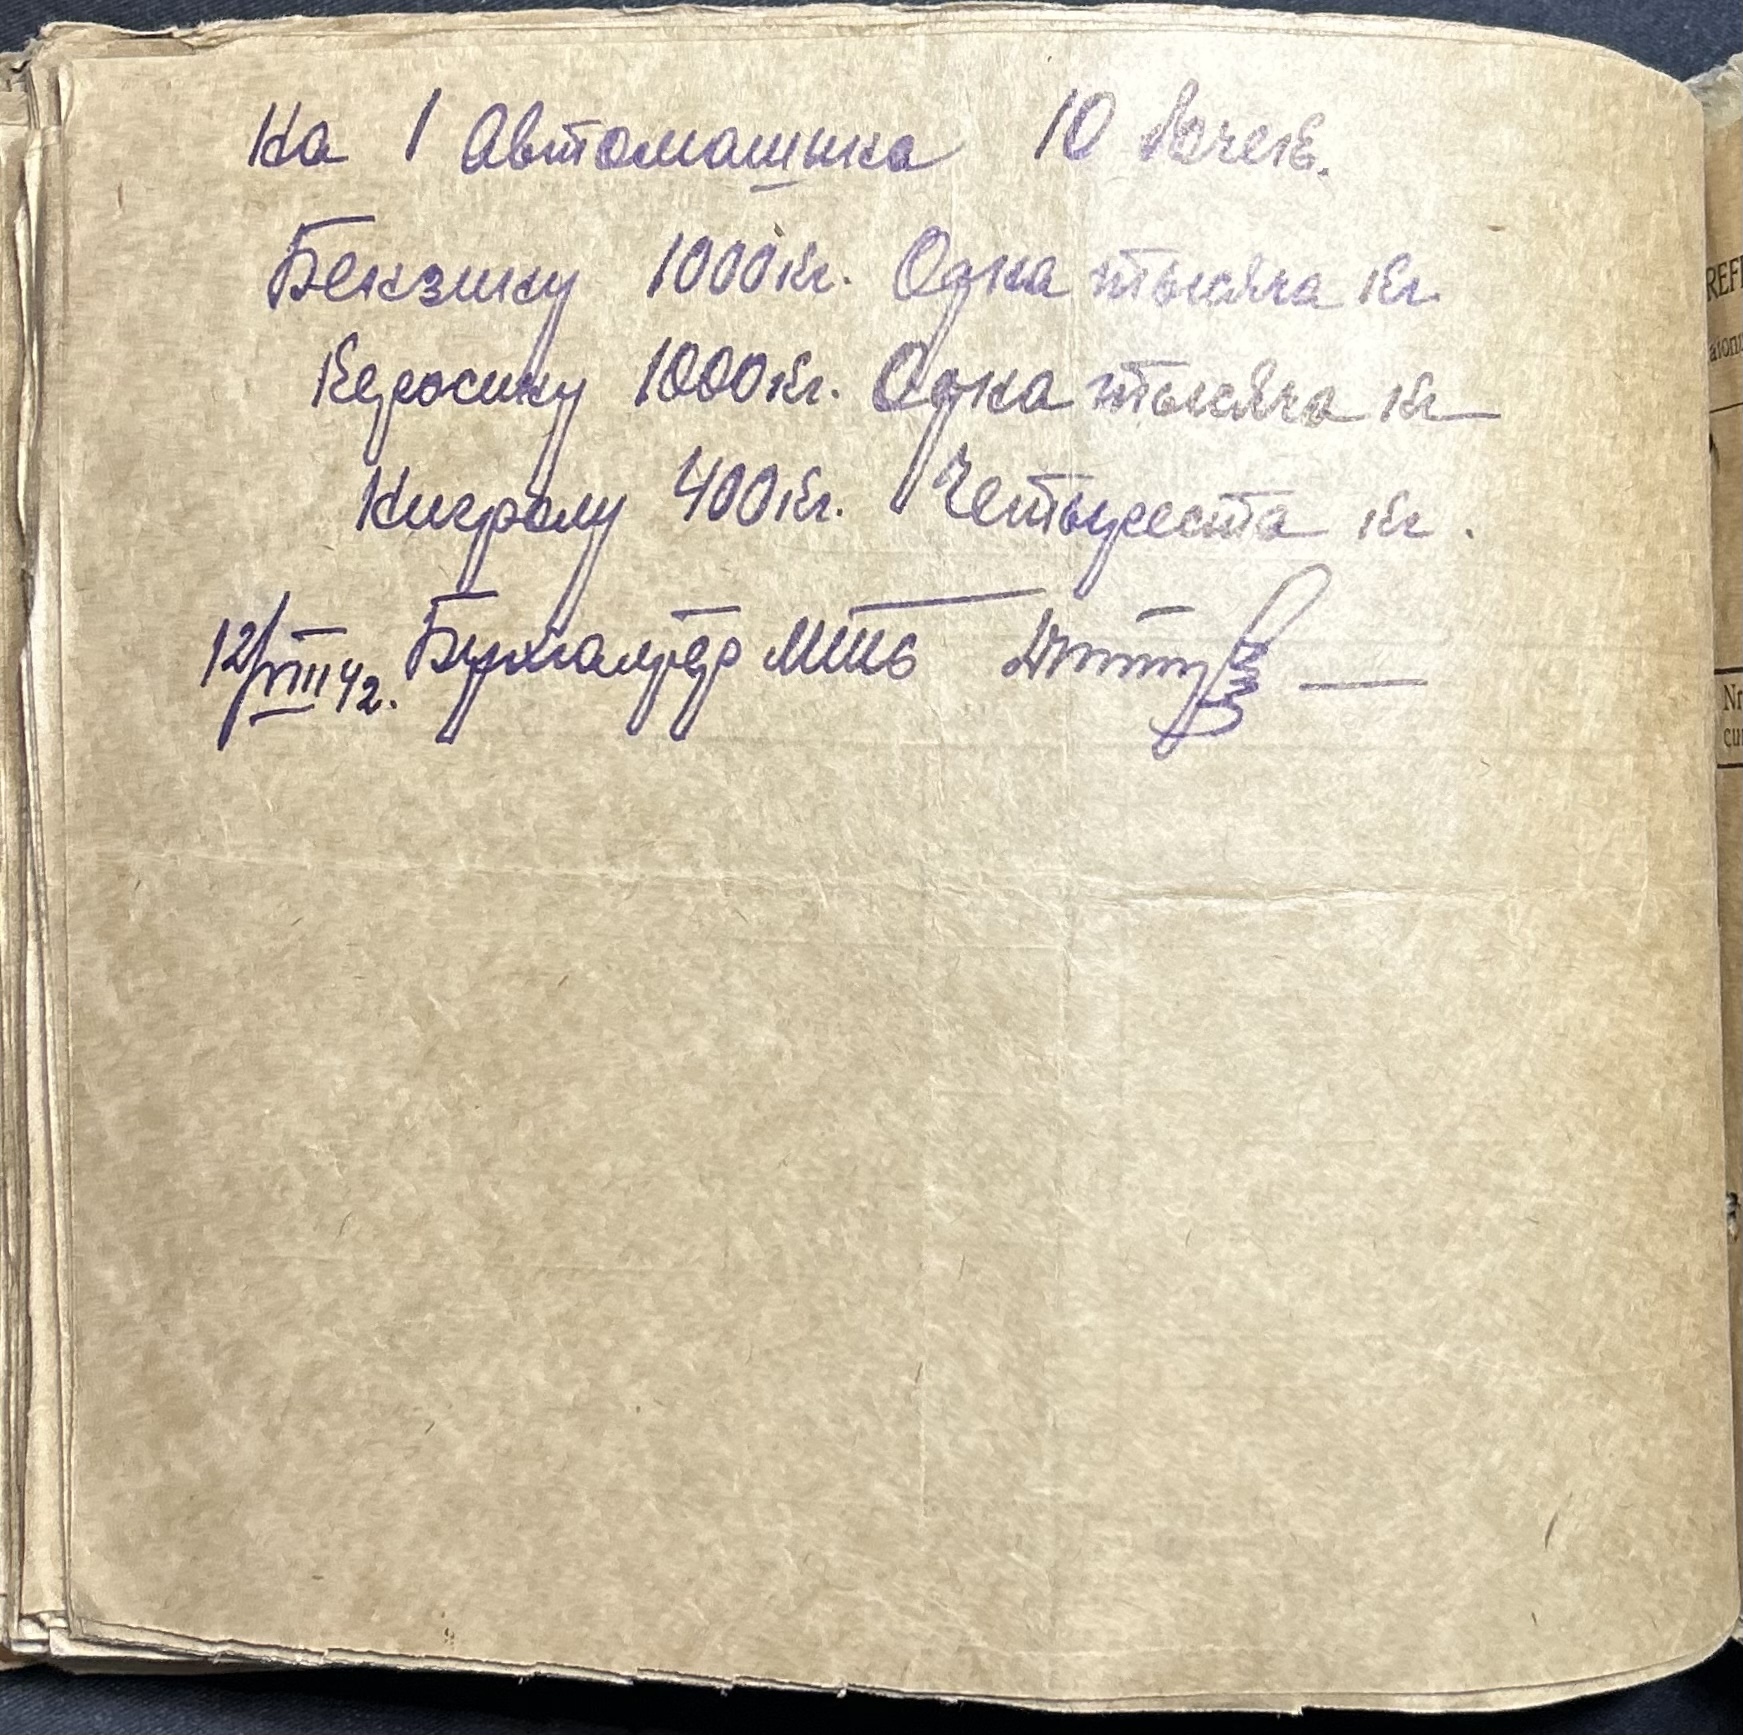 На 1 Автомашина 10 бочек.
Бензину 1000 кг. Одна тысяча кг.
Керосину 1000 кг. Одна тысяча кг
Нигролу 400 кг. Четыреста кг.
12/VIII 42. Бухгалтер МТС
REF
Nr
cu